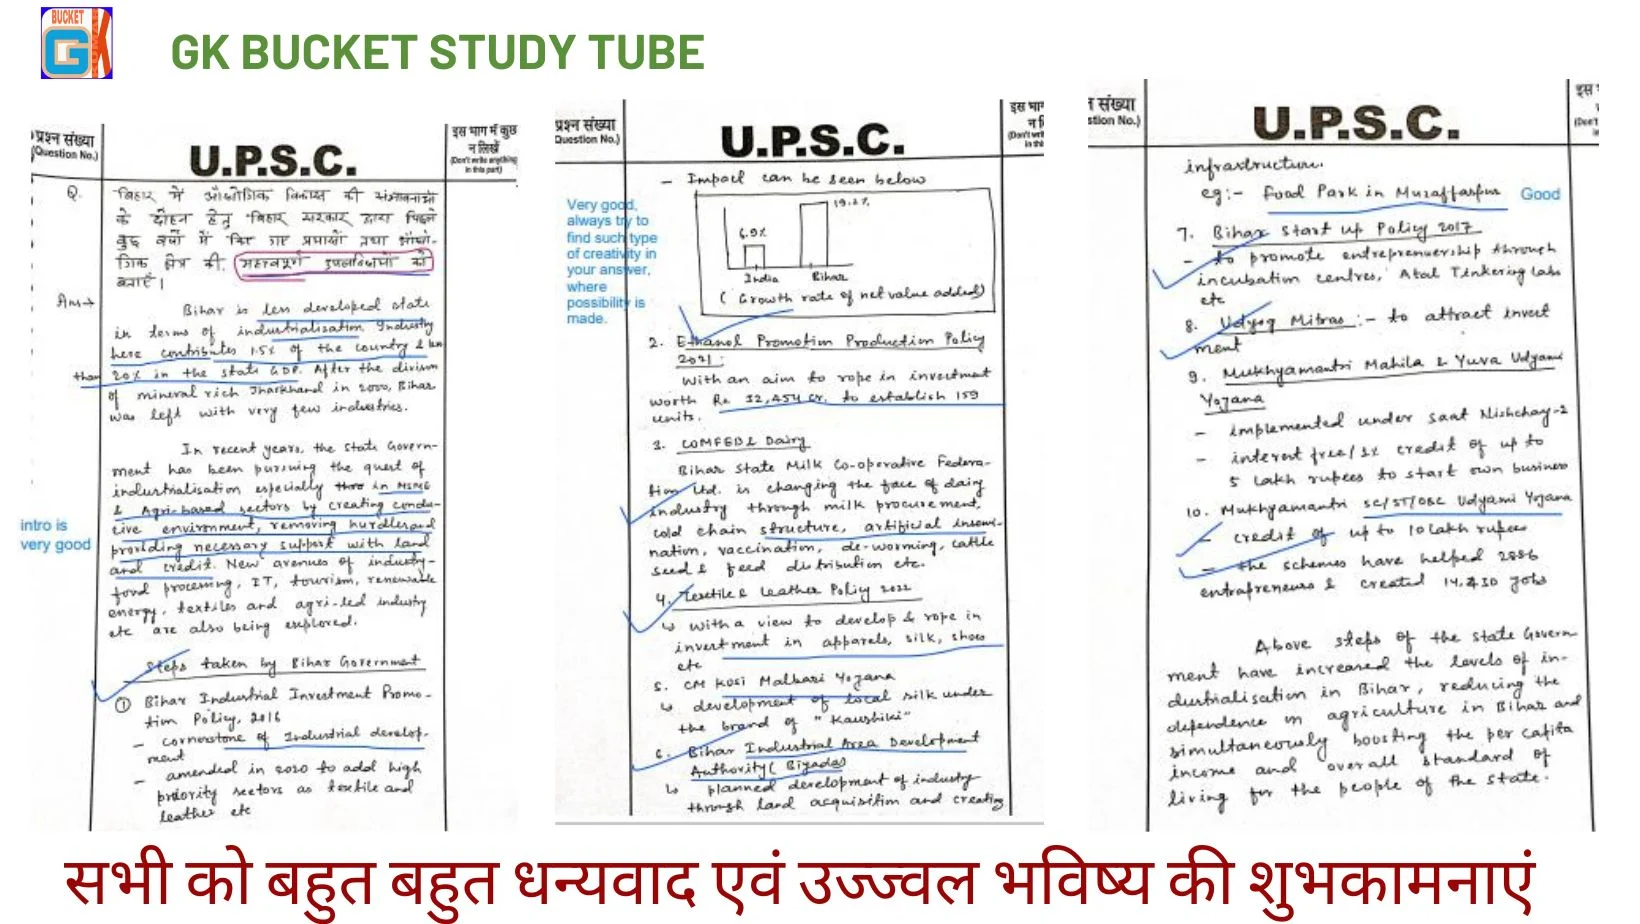 BUCKET
GK
GK BUCKET STUDY TUBE
प्रश्न संख्या
(Question No.)
U.P.S.C.
इस भाग में कुछ
न लिखें
(Don't write anything
in this part)
Q. बिहार में औद्योगिक विकास की संभावनाओं
के दोहन हेतु बिहार सरकार द्वारा पिछले
कुछ वर्षों में किए गए प्रयासों तथा औद्यो-
गिक क्षेत्र की महत्वपूर्ण उपलब्धियों को
बताएँ।
Ans→ Bihar is less developed state
in terms of industrialisation Industry
here contributes 1.5% of the country & less
than 20% in the state GDP. After the division
of mineral rich Jharkhand in 2000, Bihar
was left with very few industries.
In recent years, the state Govern-
ment has been pursuing the quest of
industrialisation especially in MSME
& Agri-based sectors by creating condu-
cive environment, removing hurdles and
providing necessary support with land
and credit. New avenues of industry-
food processing, IT, tourism, renewable
energy, textiles and agri-led industry
etc are also being explored.
intro is
very good
Steps taken by Bihar Government
① Bihar Industrial Investment Promo-
tion Policy, 2016
- cornerstone of Industrial develop-
ment
- amended in 2020 to add high
priority sectors as textile and
leather etc
प्रश्न संख्या
Question No.)
U.P.S.C.
इस भाग
(Don't
- Impact can be seen below
Very good,
always try to
find such type
of creativity in
your answer,
where
possibility is
made.
6.9%
India
Bihar
(Growth rate of net value added)
2. Ethanol Promotion Production Policy
2021:
With an aim to rope in investment
worth Rs 32,454 cr. to establish 159
units.
3. COMFED & Dairy
Bihar State Milk Co-operative Federa-
tion Ltd. is changing the face of dairy
industry through milk procurement,
cold chain structure, artificial insemi-
nation, vaccination, de-worming, cattle
seed & feed distribution etc.
4. Textile & Leather Policy 2022
↳ with a view to develop & rope in
investment in apparels, silk, shoes
etc
5. CM Kosi Malbari Yojana
↳ development of local silk under
the brand of "Kaushiki"
6. Bihar Industrial Area Development
Authority (Biyada)
↳ planned development of industry
through land acquisition and creating
संख्या
stion No.)
U.P.S.C.
इस
infrastructure.
eg:- Food Park in Muzaffarpur
Good
7. Bihar Start up Policy 2017
- to promote entreprenuership through
incubation centres, Atal Tinkering labs
etc
8. Udyog Mitras:- to attract invest
ment
9. Mukhyamantri Mahila & Yuva Udyami
Yojana
- implemented under Saat Nishchay-2
- interest free/1% credit of up to
5 lakh rupees to start own business
10. Mukhyamantri SC/ST/OBC Udyami Yojana
- credit of up to 10 lakh rupees
- the schemes have helped 2886
entrapreneurs & created 14,430 jobs
Above steps of the state Govern
ment have increased the levels of in-
dustrialisation in Bihar, reducing the
dependence on agriculture in Bihar and
simultaneously boosting the per capita
income and overall standard of
living for the people of the state.
सभी को बहुत बहुत धन्यवाद एवं उज्ज्वल भविष्य की शुभकामनाएं